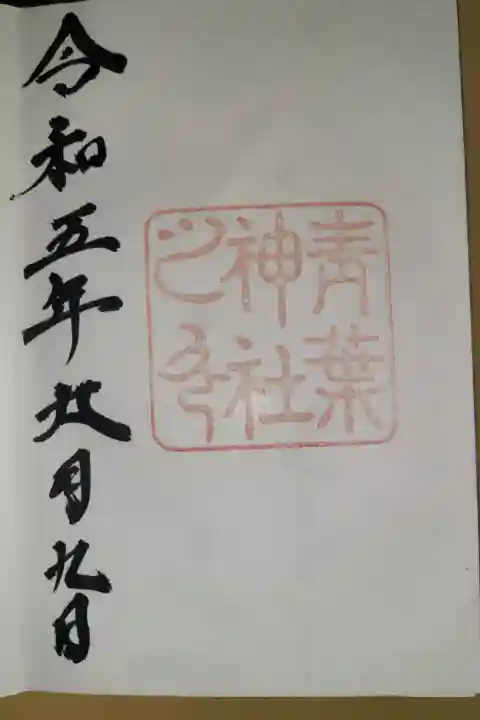 青葉
神社
之印
令和五年 月九日